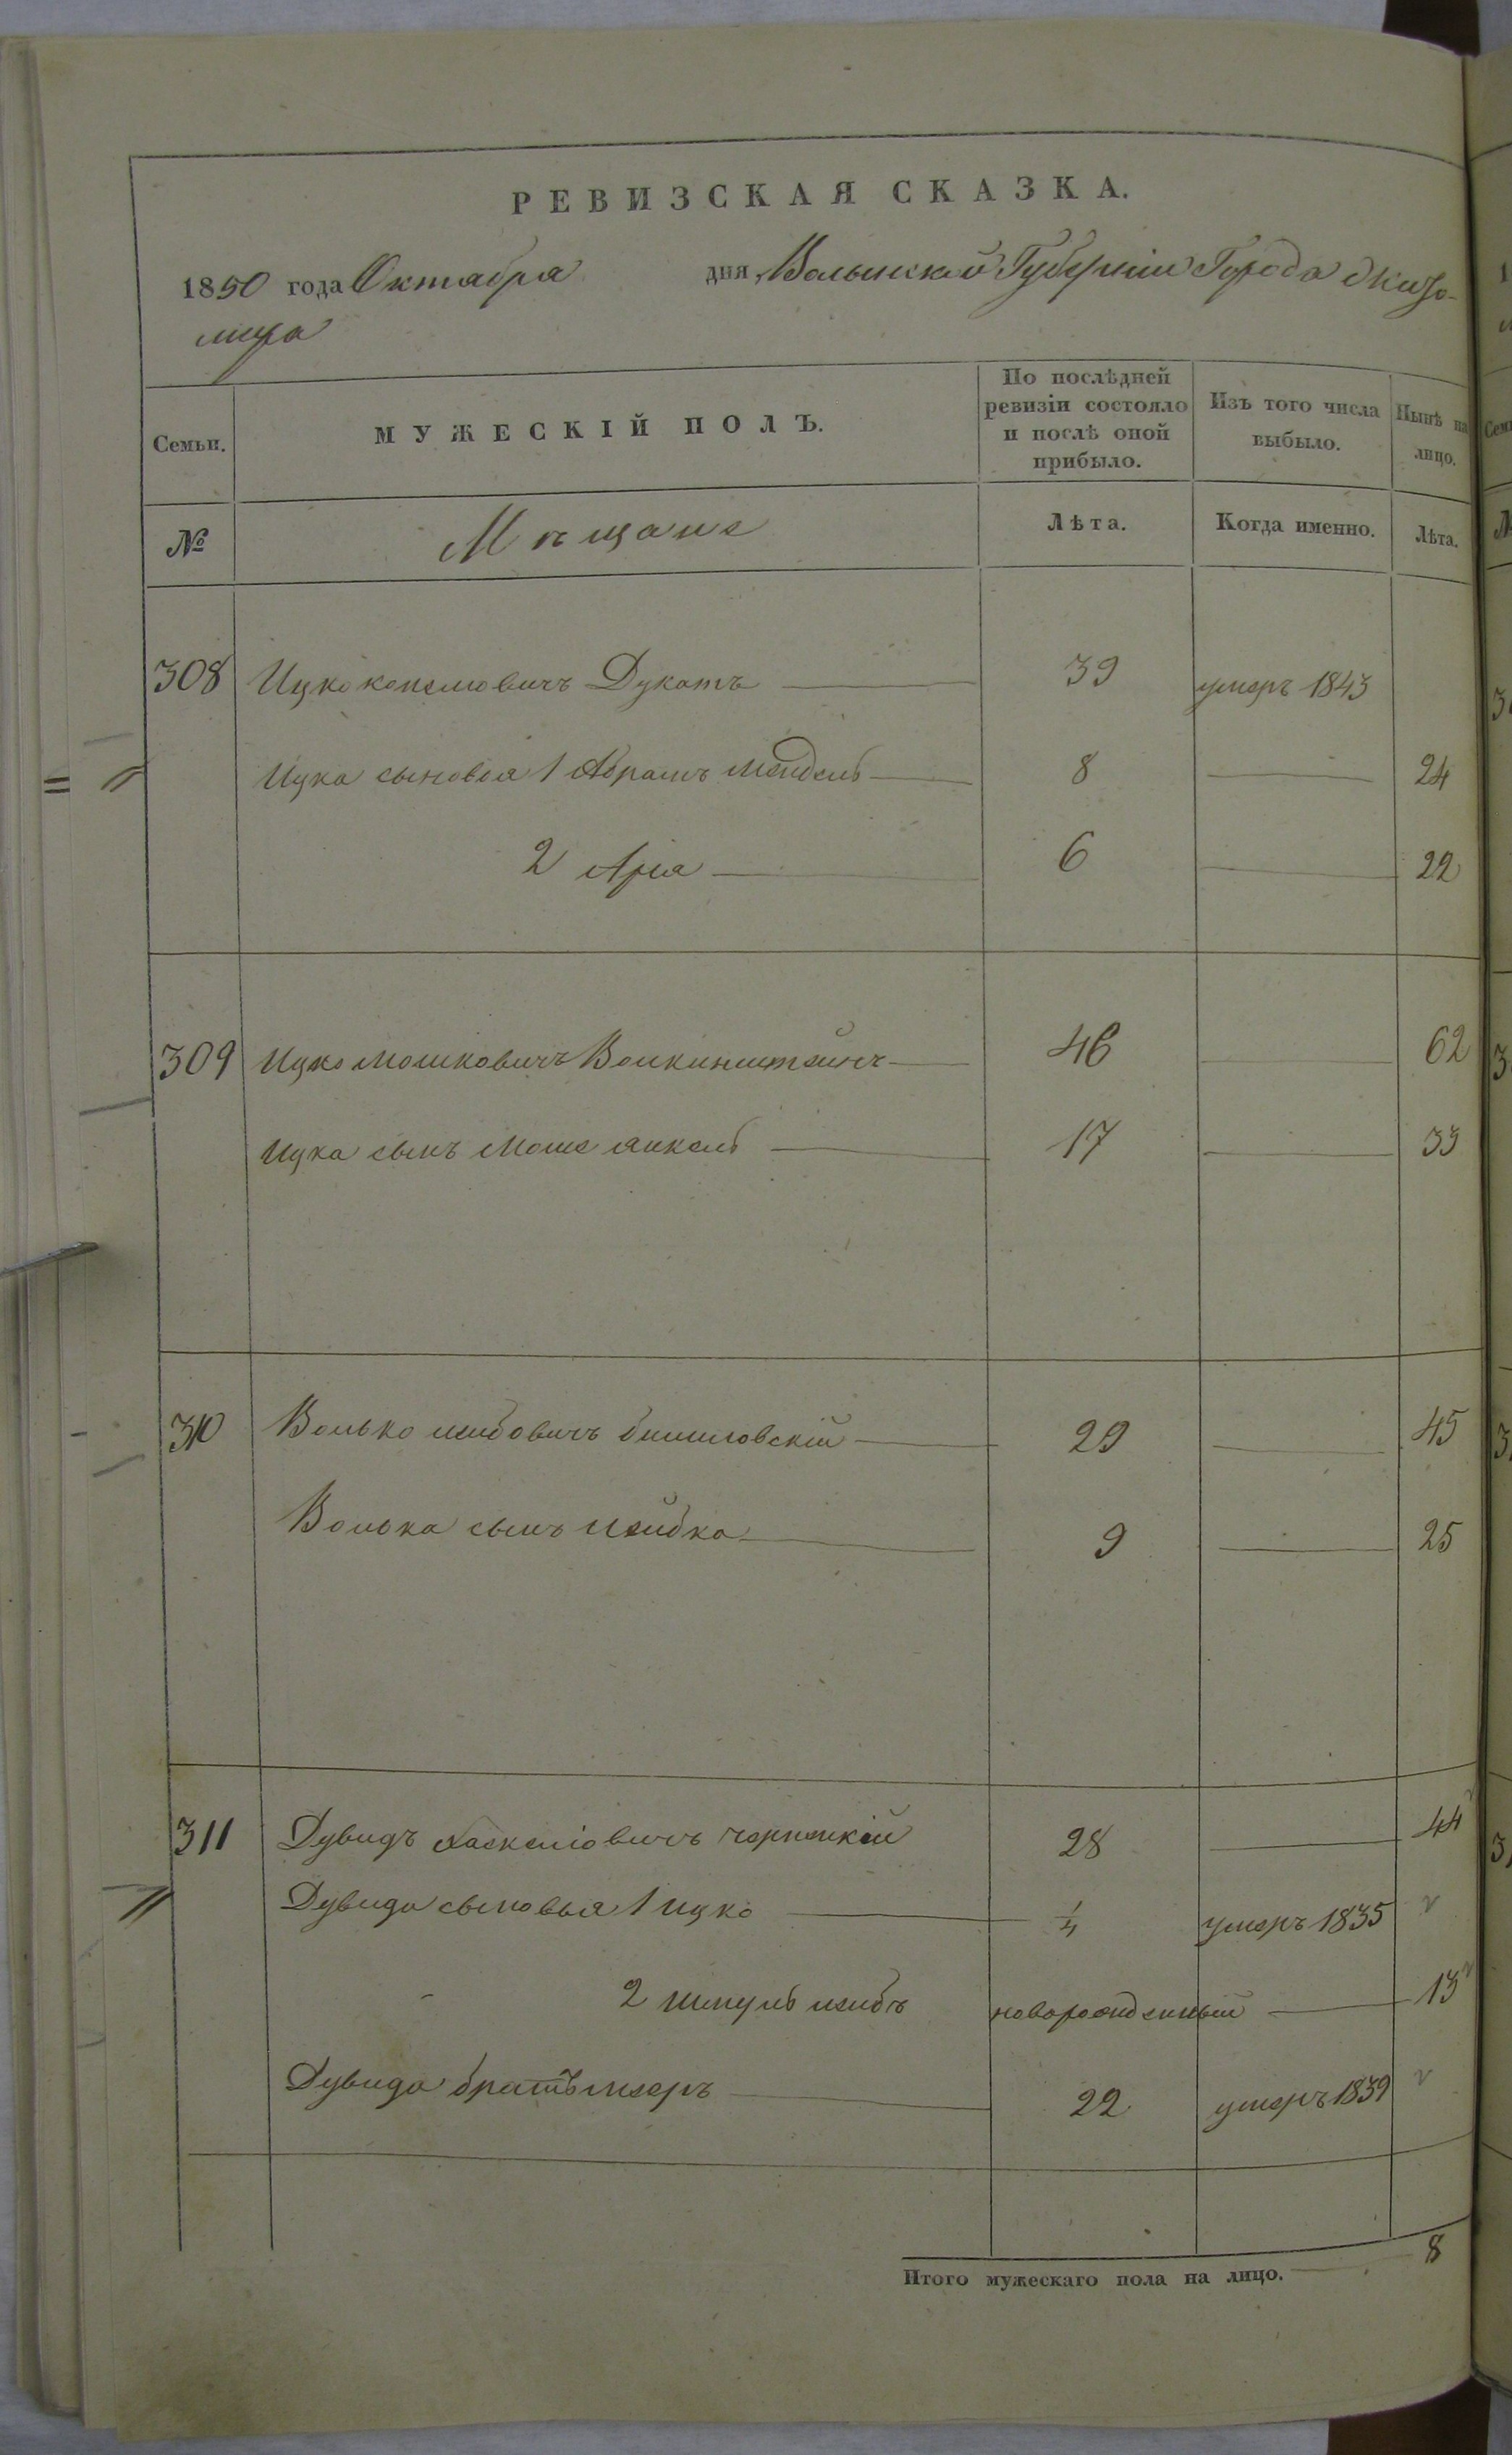 РЕВИЗСКАЯ СКАЗКА.
1850 года Октября дня, Волынской Губерніи Города Жито-
мира
Семьи. МУЖЕСКІЙ ПОЛЪ. По послѣдней ревизіи состояло и послѣ оной прибыло. Изъ того числа выбыло. Нынѣ на лицо.
№ Мѣщане Лѣта. Когда именно. Лѣта.
308 Ицко Копелювичъ Дукатъ 39 умеръ 1843
Ицка сыновья 1 Абрамъ Мендель 8 24
2 Аріа 6 22
309 Ицко Мошковичъ 46 62
Ицка сынъ Моше Янкель 17 33
310 Волько Лейбовичъ 29 45
Волька сынъ Лейбка 9 25
311 Дувидъ 28 44
Дувида сыновья 1 Ицко 1/4 умеръ 1835
2 Шмуль Лейбъ новорожденный 13
Дувида братъ 22 умеръ 1839
Итого мужескаго пола на лицо. 8